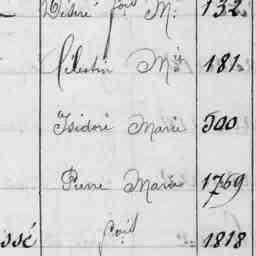 Désiré M. 132
Célestin Mie 181
Isidore Marie 500
Pierre Marie 1769
ssé 1818